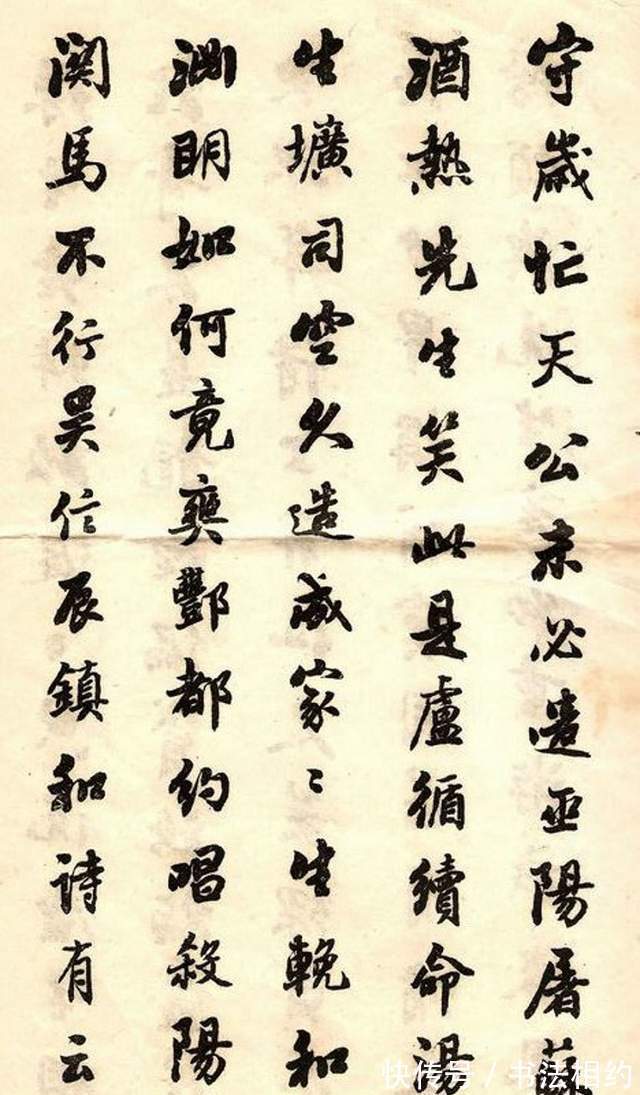 守歲忙天公未必遣亚陽屠蘇
酒熱先生笑此是盧循續命湯
生壙司空久造成家〻生輓和
淵明如何竟爽酆都約唱殺陽
関馬不行吴信辰鎮和詩有云
快传号/书法相约